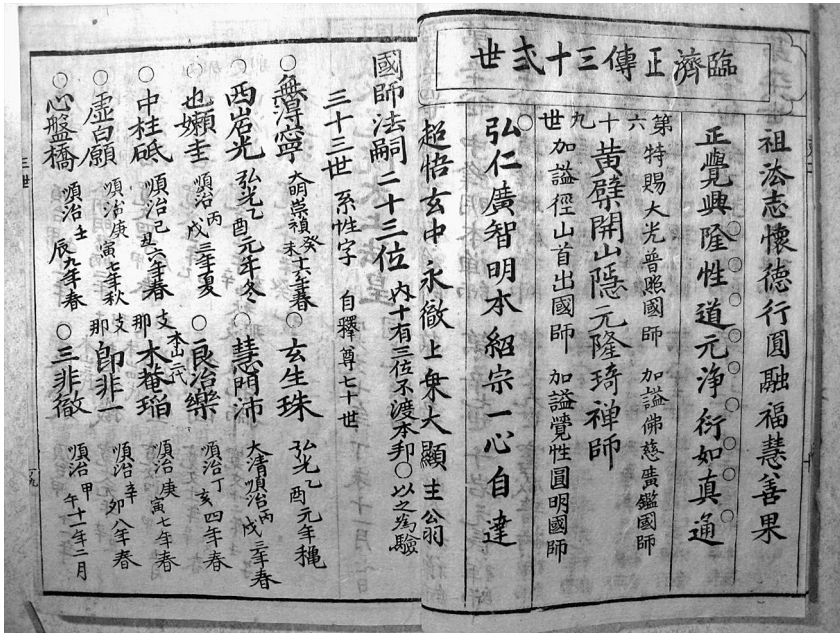 臨濟正傳三十弍世
祖法志懷德行圓融福慧善果
正覺興隆性道元淨衍如真通
第六十九世
特賜大光普照國師 加謚佛慈廣鑑國師
黃檗開山隱元隆琦禅師
加謚徑山首出國師 加謚覺性圓明國師
弘仁廣智明本紹宗一心自達
超悟玄中永徹上乗大顯主翁
國師法嗣二十三位 内十有三位不渡本邦〇以之為驗
三十三世 系性字 自釋尊七十世
〇無淂寧 大明崇禎癸未十六年春 〇玄生珠 弘光乙酉元年
〇西岩光 弘光乙酉元年冬 〇慧門沛 大清順治丙戌三年春
〇也嬾圭 順治丙戌三年夏 〇良冶樂 順治丁亥四年春
〇中柱砥 順治己丑六年春 支那 木菴瑫 本山二代 順治庚寅七年春
〇虛白願 順治庚寅七年秋 支那 即非一 順治辛卯八年春
〇心盤橋 順治壬辰九年春 〇三非徹 順治甲午十一年二月
三世